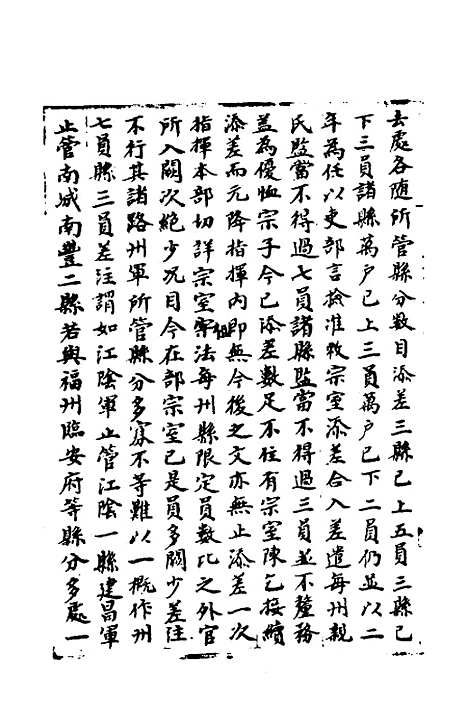 去處各隨所管縣分數目添差三縣已上五員三縣已
下三員諸縣萬户已上三員萬户已下二員仍並以二
年為任以吏部言檢准敕宗室添差合入差遣每州親
民監當不得過七員諸縣監當不得過三員並不釐務
蓋為優恤宗子今已添差數足不住有宗室陳乞接續
添差而元降指揮内即無今後之文亦無止添差一次
指揮本部切詳宗室祖宗法每州縣限定員數比之外官
所入闕次絶少况目今在部宗室已是員多闕少差注
不行其諸路州軍所管縣分多寡不等難以一概作州
七員縣三員差注謂如江陰軍止管江陰一縣建昌軍
止管南城南豐二縣若與福州臨安府等縣分多處一